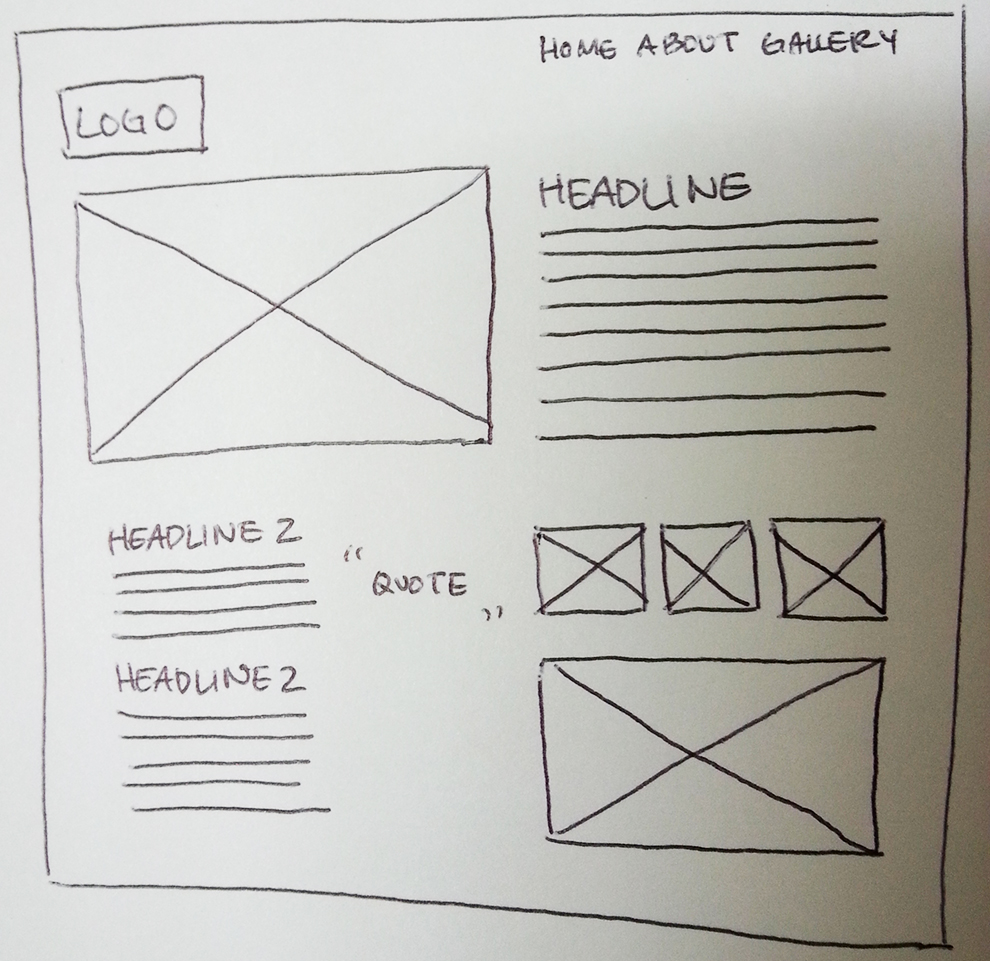 HOME ABOUT GALLERY
LOGO
HEADLINE
HEADLINE 2
“ QUOTE ”
HEADLINE 2